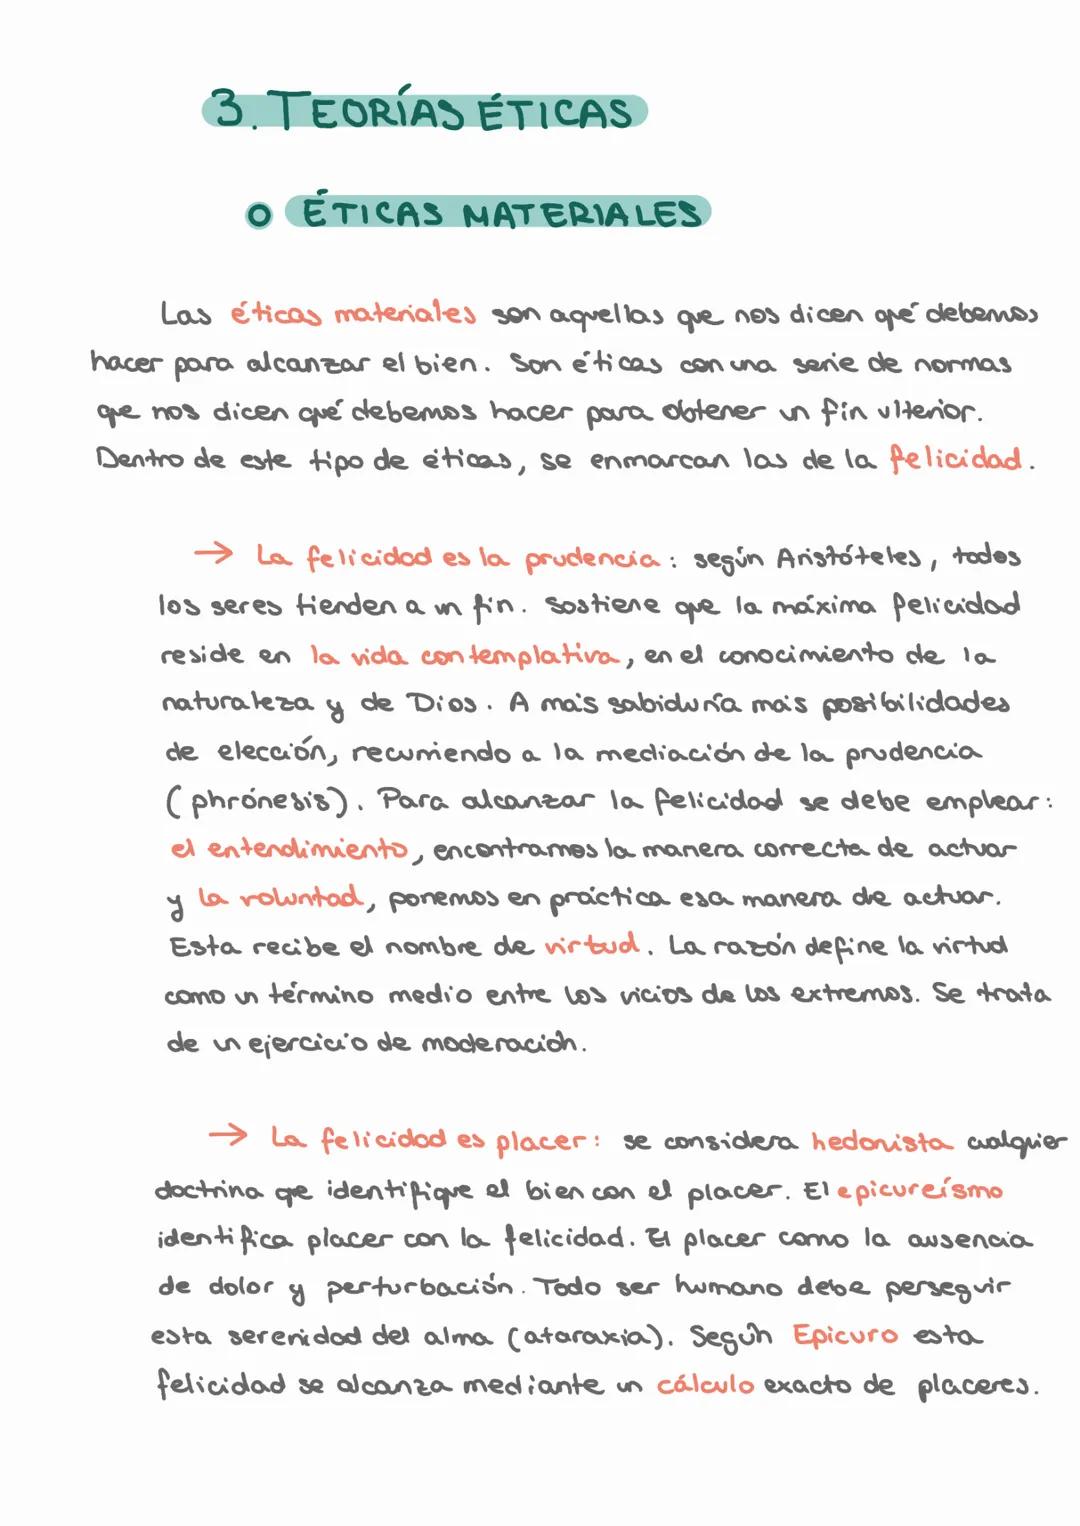 3. TEORÍAS ÉTICAS
o ÉTICAS MATERIALES
Las éticas materiales son aquellas que nos dicen qué debemos
hacer para alcanzar el bien. Son éticas con una serie de normas
que nos dicen qué debemos hacer para obtener un fin ulterior.
Dentro de este tipo de éticas, se enmarcan las de la felicidad.
→ La felicidad es la prudencia: según Aristóteles, todos
los seres tienden a un fin. Sostiene que la máxima felicidad
reside en la vida contemplativa, en el conocimiento de la
naturaleza y de Dios. A más sabiduría más posibilidades
de elección, recurriendo a la mediación de la prudencia
(phrónesis). Para alcanzar la felicidad se debe emplear:
el entendimiento, encontramos la manera correcta de actuar
y la voluntad, ponemos en práctica esa manera de actuar.
Esta recibe el nombre de virtud. La razón define la virtud
como un término medio entre los vicios de los extremos. Se trata
de un ejercicio de moderación.
→ La felicidad es placer: se considera hedonista cualquier
doctrina que identifique el bien con el placer. El epicureísmo
identifica placer con la felicidad. El placer como la ausencia
de dolor y perturbación. Todo ser humano debe perseguir
esta serenidad del alma (ataraxia). Según Epicuro esta
felicidad se alcanza mediante un cálculo exacto de placeres.